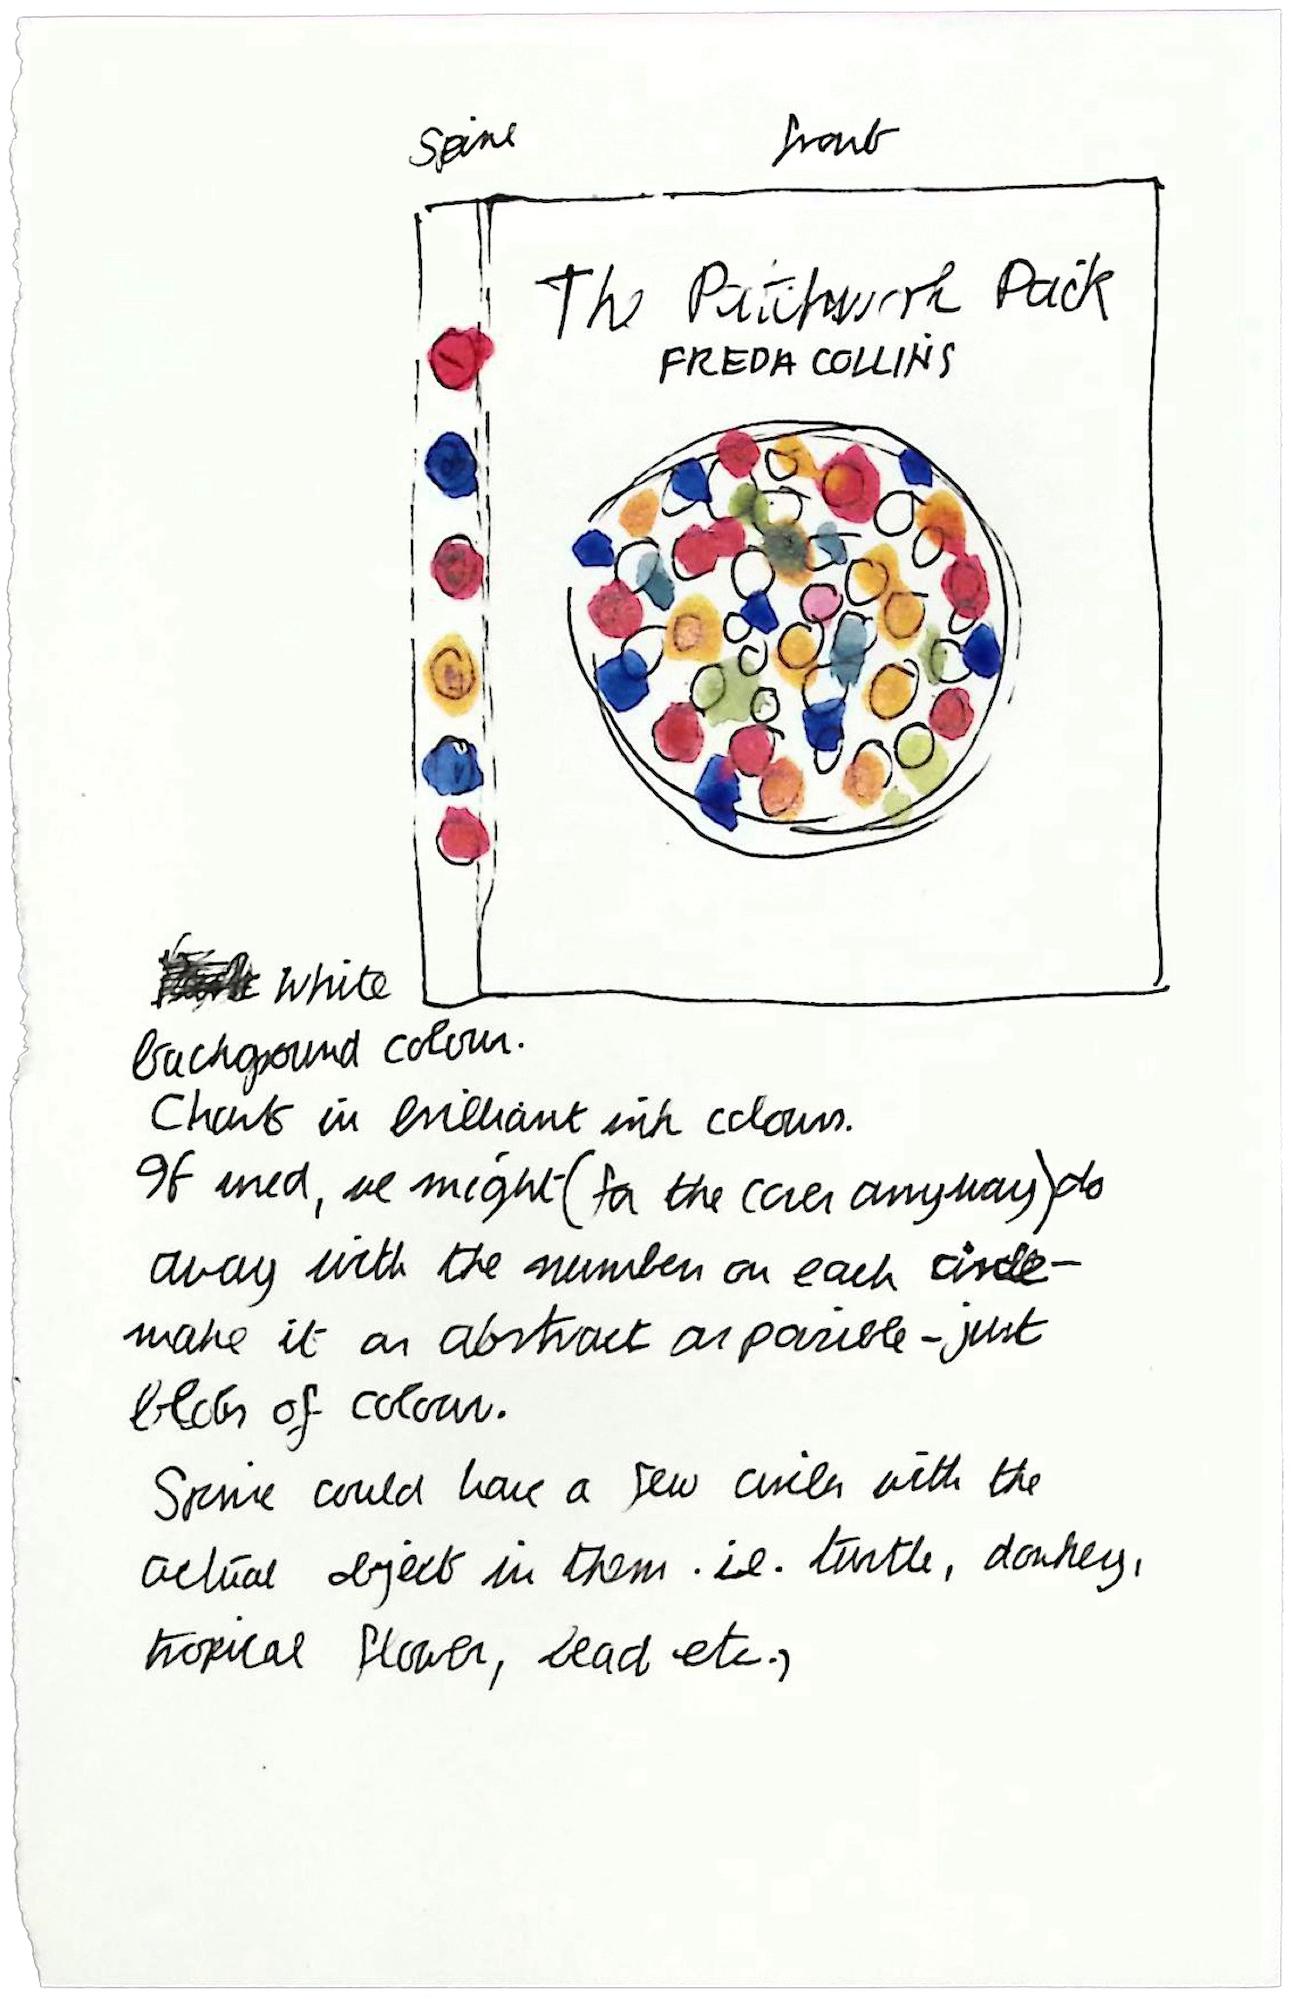 Spine front
The Patchwork Pack
FREDA COLLINS
White
background colour.
Charts in brilliant ink colours.
If used, we might (for the cover anyway) do
away with the number on each circle –
make it as abstract as possible – just
blobs of colour.
Spine could have a few circles with the
actual object in them . i.e. turtle, donkey,
tropical flower, bead etc.,